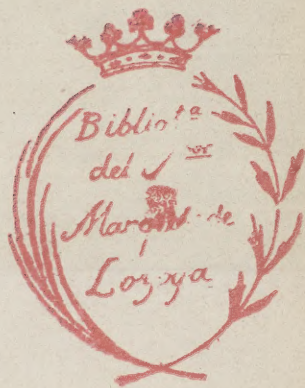 Bibliotª
del Sor
Marqués de
Lozoya